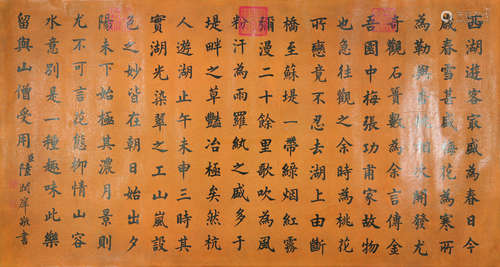 西湖遊客最盛為春日今
歲春雪甚盛梅花為寒所
為勒與杏桃相次開發尤
奇觀石簣數為余言傅金
吾園中梅張功甫家故物
也急往觀之余時為桃花
所戀竟不忍去湖上由斷
橋至蘇堤一帶綠烟紅霧
彌漫二十餘里歌吹為風
粉汗為雨羅紈之盛多于
堤畔之草豔冶極矣然杭
人遊湖止午未申三時其
實湖光染翠之工山嵐設
色之妙皆在朝日始出夕
陽未下始極其濃月景則
尤不可言花態柳情山容
水意別是一種趣味此樂
留與山僧受用
臣陸潤庠敬書